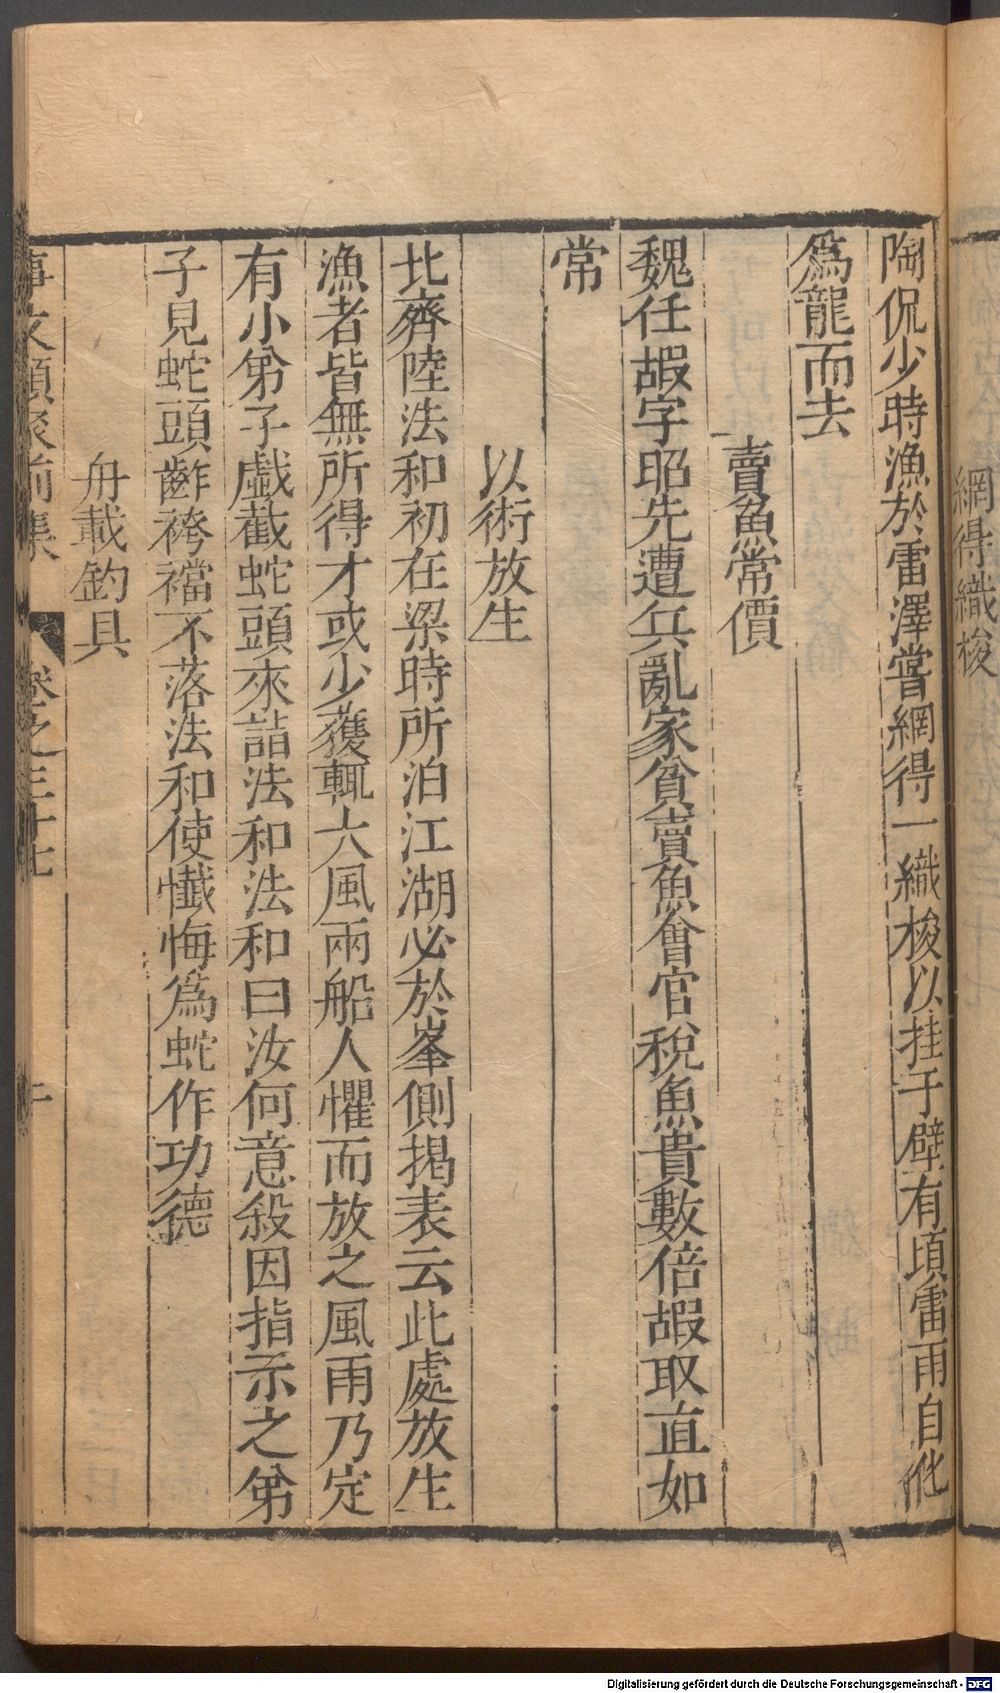 網得織梭
陶侃少時漁於雷澤嘗網得一織梭以挂于壁有頃雷雨自化
爲龍而去
賣魚常價
魏任嘏字昭先遭兵亂家貧賣魚會官稅魚貴數倍嘏取直如
常
以術放生
北齊陸法和初在梁時所泊江湖必於峯側揭表云此處放生
漁者皆無所得才或少獲輒大風雨船人懼而放之風雨乃定
有小弟子戲截蛇頭來詣法和法和曰汝何意殺因指示之弟
子見蛇頭齚袴襠不落法和使懺悔爲蛇作功德
舟載釣具
事文類聚前集 卷之三十七 十
Digitalisierung gefördert durch die Deutsche Forschungsgemeinschaft - DFG